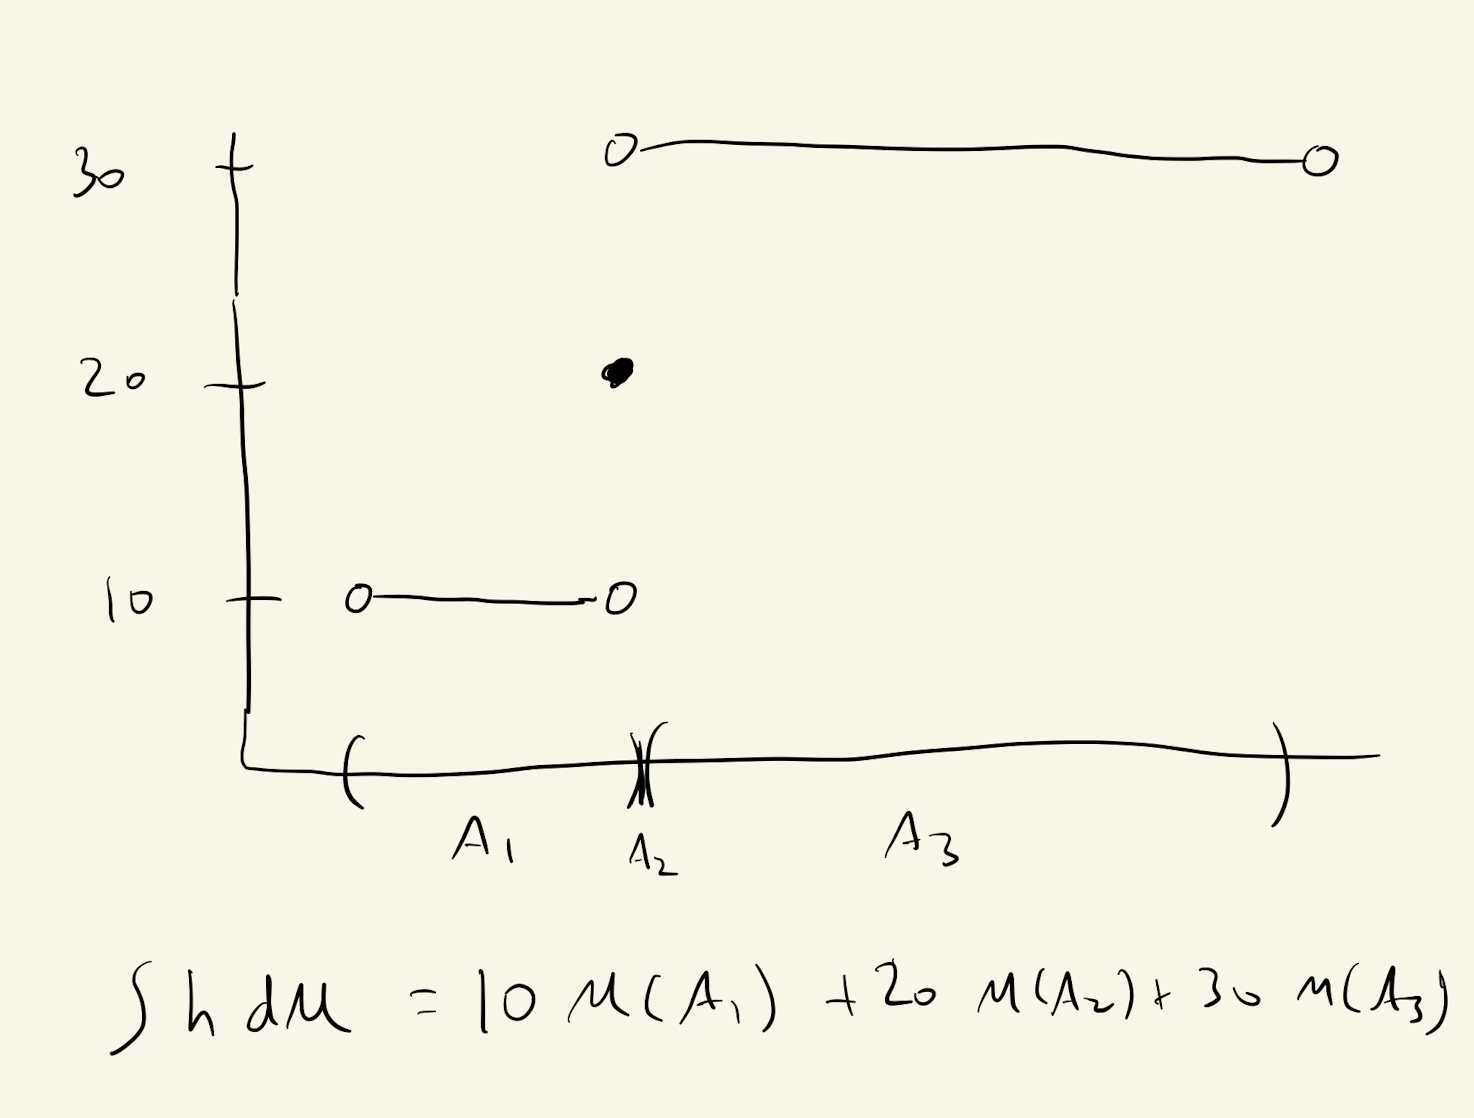 30
20
10
A₁
A₂
A₃
∫ h dμ = 10 μ(A₁) + 20 μ(A₂) + 30 μ(A₃)